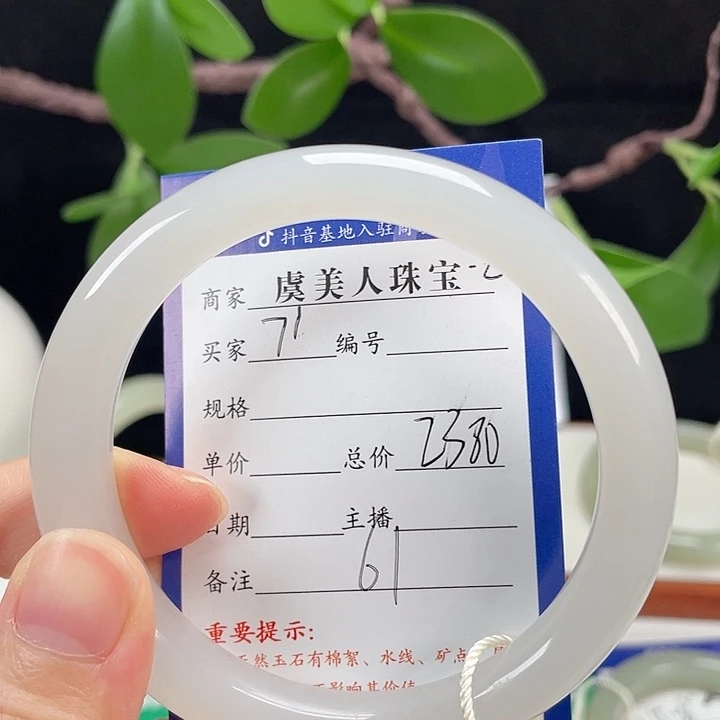 抖音基地入驻商
商家 虞美人珠宝
买家 71 编号
规格
单价 总价 2380
日期 主播
备注 61
重要提示:
天然玉石有棉絮、水线、矿点
影响其价值